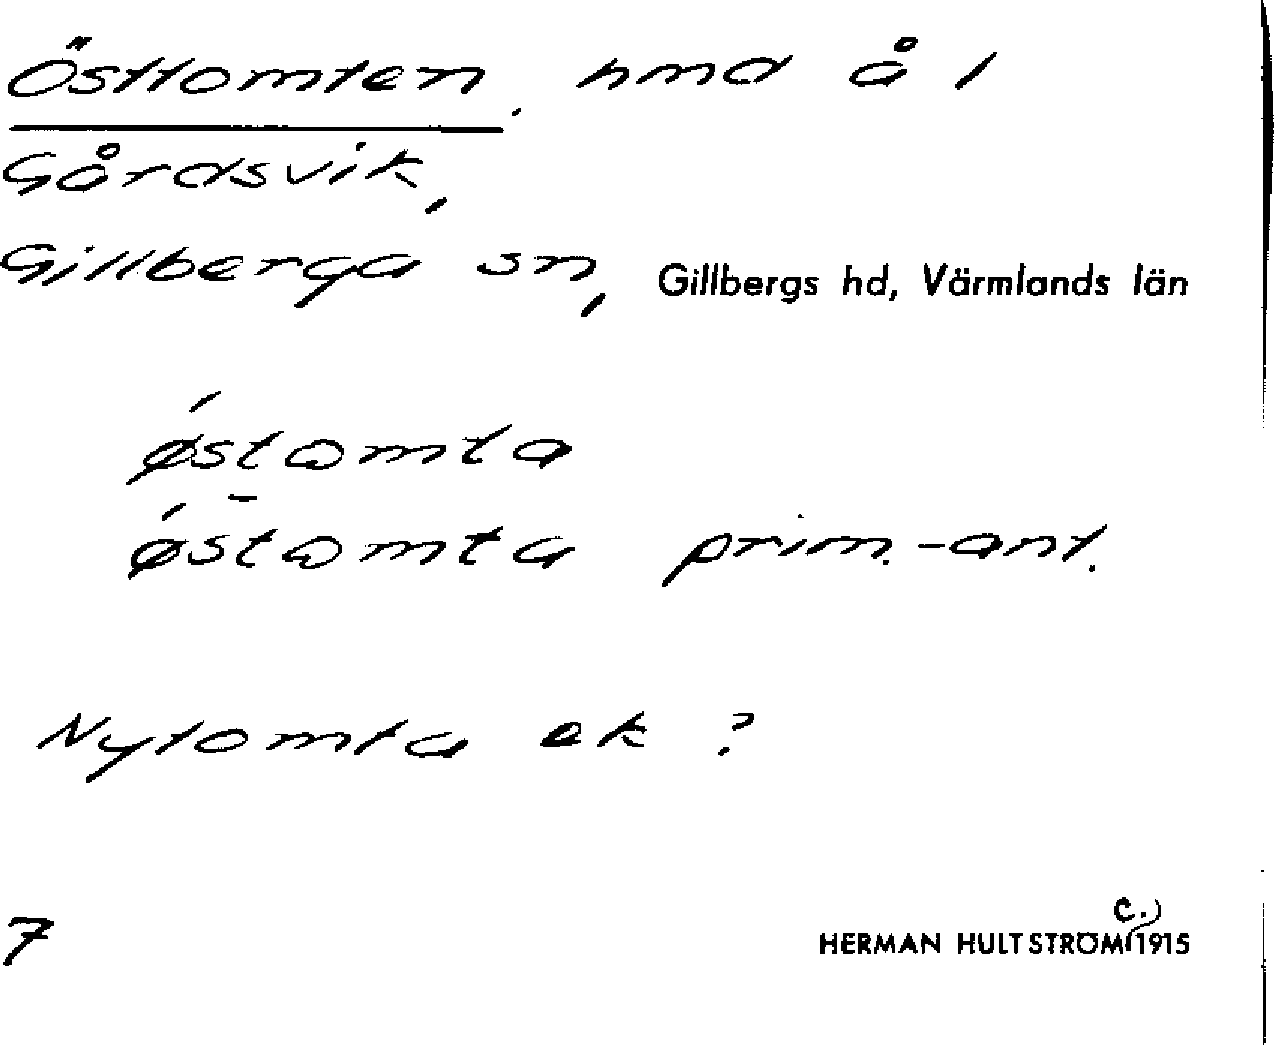 Östtomten, hmd å 1
Gårdsvik,
Gillberga sn, Gillbergs hd, Värmlands län
ǿstωmta
ǿst̄ωmta prim.-ant.
Nytomta ek ?
7
HERMAN HULTSTRÖM (c.) 1915